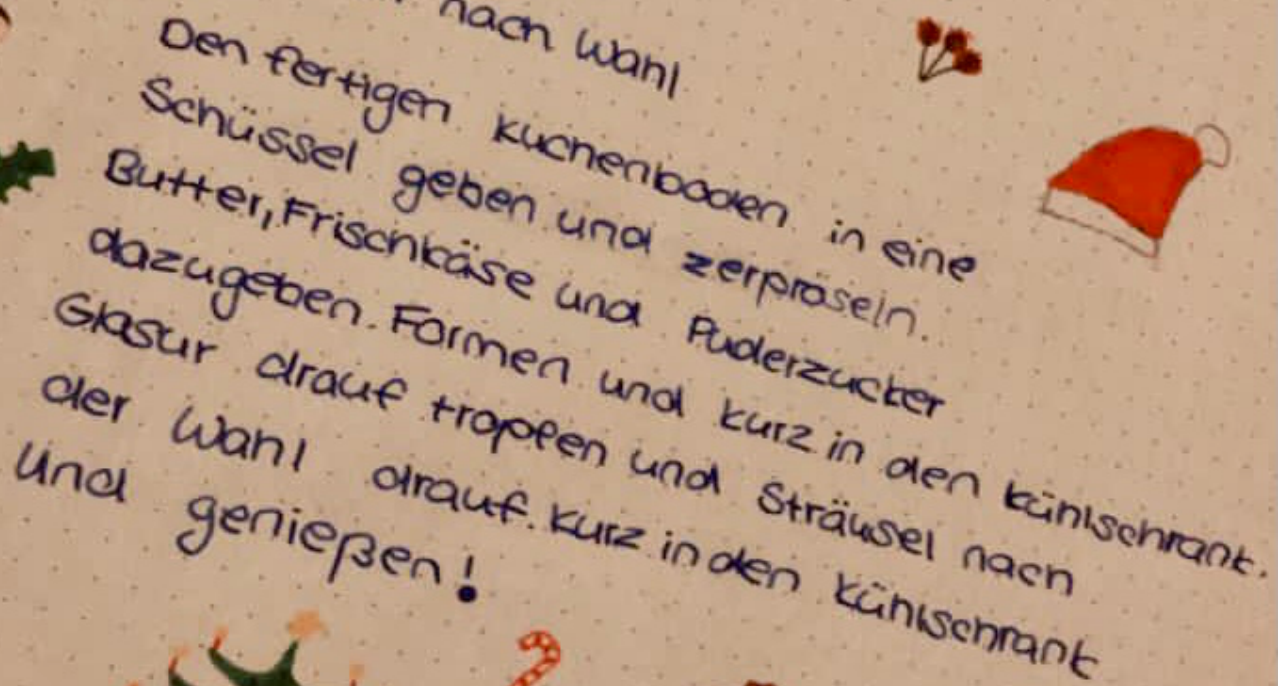 nach Wahl
Den fertigen Kuchenboden in eine
Schüssel geben und zerpröseln.
Butter, Frischkäse und Puderzucker
dazugeben. Formen und kurz in den Kühlschrank.
Glasur drauf tropfen und Sträusel nach
der Wahl drauf. Kurz in den Kühlschrank
Und genießen!